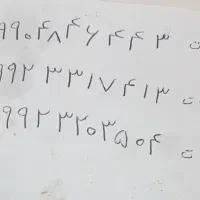 ۹۹۰۴۸۴۶۴۴۳ ت
۹۹۲۳۳۱۷۴۱۳ ت
۹۹۲۳۲۰۳۵۰۴ ت